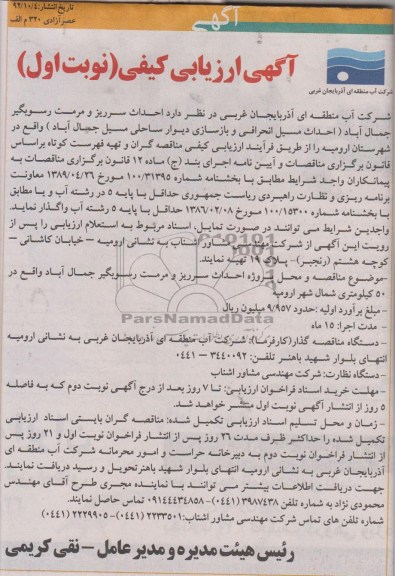 آگهی
تاریخ انتشار: ۹۲/۱۰/۴
عصر آزادی ۳۲۰ م الف
آگهی ارزیابی کیفی (نوبت اول)
شرکت آب منطقه ای آذربایجان غربی
شرکت آب منطقه ای آذربایجان غربی در نظر دارد احداث سرریز و مرمت رسوبگیر
جمال آباد ( احداث مسیل انحرافی و بازسازی دیوار ساحلی مسیل جمال آباد ) واقع در
شهرستان ارومیه را از طریق فرآیند ارزیابی کیفی مناقصه گران و تهیه فهرست کوتاه براساس
قانون برگزاری مناقصات و آیین نامه اجرای بند (ج) ماده ۱۲ قانون برگزاری مناقصات به
پیمانکاران واجد شرایط مطابق با بخشنامه شماره ۱۰۰/۳۱۳۹۵ مورخ ۱۳۸۹/۰۴/۲۶ معاونت
برنامه ریزی و نظارت راهبردی ریاست جمهوری حداقل با پایه ۵ در رشته آب و یا مطابق
با بخشنامه شماره ۱۰۰/۱۵۳۰۰ مورخ ۱۳۸۶/۰۲/۰۸ حداقل با پایه ۵ رشته آب واگذار نماید.
واجدین شرایط می توانند در صورت تمایل، اسناد مرتوط به استعلام ارزیابی را پس از
رویت این آگهی از شرکت مهندسی مشاور اشناب به نشانی ارومیه – خیابان کاشانی –
کوچه هشتم (رنجبر)– پلاک ۱۹ تهیه نمایند.
–موضوع مناقصه و محل پروژه احداث سرریز و مرمت رسوبگیر جمال آباد واقع در
۵۰ کیلومتری شمال شهر ارومیه
– مبلغ برآورد اولیه :حدود ۹/۹۵۷ میلیون ریال
– مدت اجرا: ۱۵ ماه
– دستگاه مناقصه گذار(کارفرما): شرکت آب منطقه ای آذربایجان غربی به نشانی ارومیه
انتهای بلوار شهید باهنر تلفن: ۳۴۴۰۰۹۲ – ۰۴۴۱
– دستگاه نظارت: شرکت مهندسی مشاور اشناب
– مهلت خرید اسناد فراخوان ارزیابی: تا ۷ روز بعد از درج آگهی نوبت دوم که به فاصله
۵ روز از انتشار آگهی نوبت اول منتشر خواهد شد.
– زمان و محل تسلیم اسناد ارزیابی تکمیل شده: مناقصه گران بایستی اسناد ارزیابی
تکمیل شده را حداکثر ظرف مدت ۲۶ روز پس از انتشار فراخوان نوبت اول و ۲۱ روز پس
از انتشار فراخوان نوبت دوم به دبیرخانه حراست و امور محرمانه شرکت آب منطقه ای
آذربایجان غربی به نشانی ارومیه انتهای بلوار شهید باهنر تحویل و رسید دریافت نمایند.
جهت دریافت اطلاعات بیشتر می توانند با نماینده مجری طرح آقای مهندس
محمودی نژاد به شماره تلفن ۳۹۸۷۴۳۸ (۰۴۴۱)– ۰۹۱۴۴۴۳۴۸۵۸ تماس حاصل نمایند.
شماره تلفن های تماس شرکت مهندسی مشاور اشناب: ۲۲۳۳۵۰۱ (۰۴۴۱)– ۲۲۲۹۹۰۵ (۰۴۴۱)
رئیس هیئت مدیره و مدیر عامل – نقی کریمی
ParsNamadData